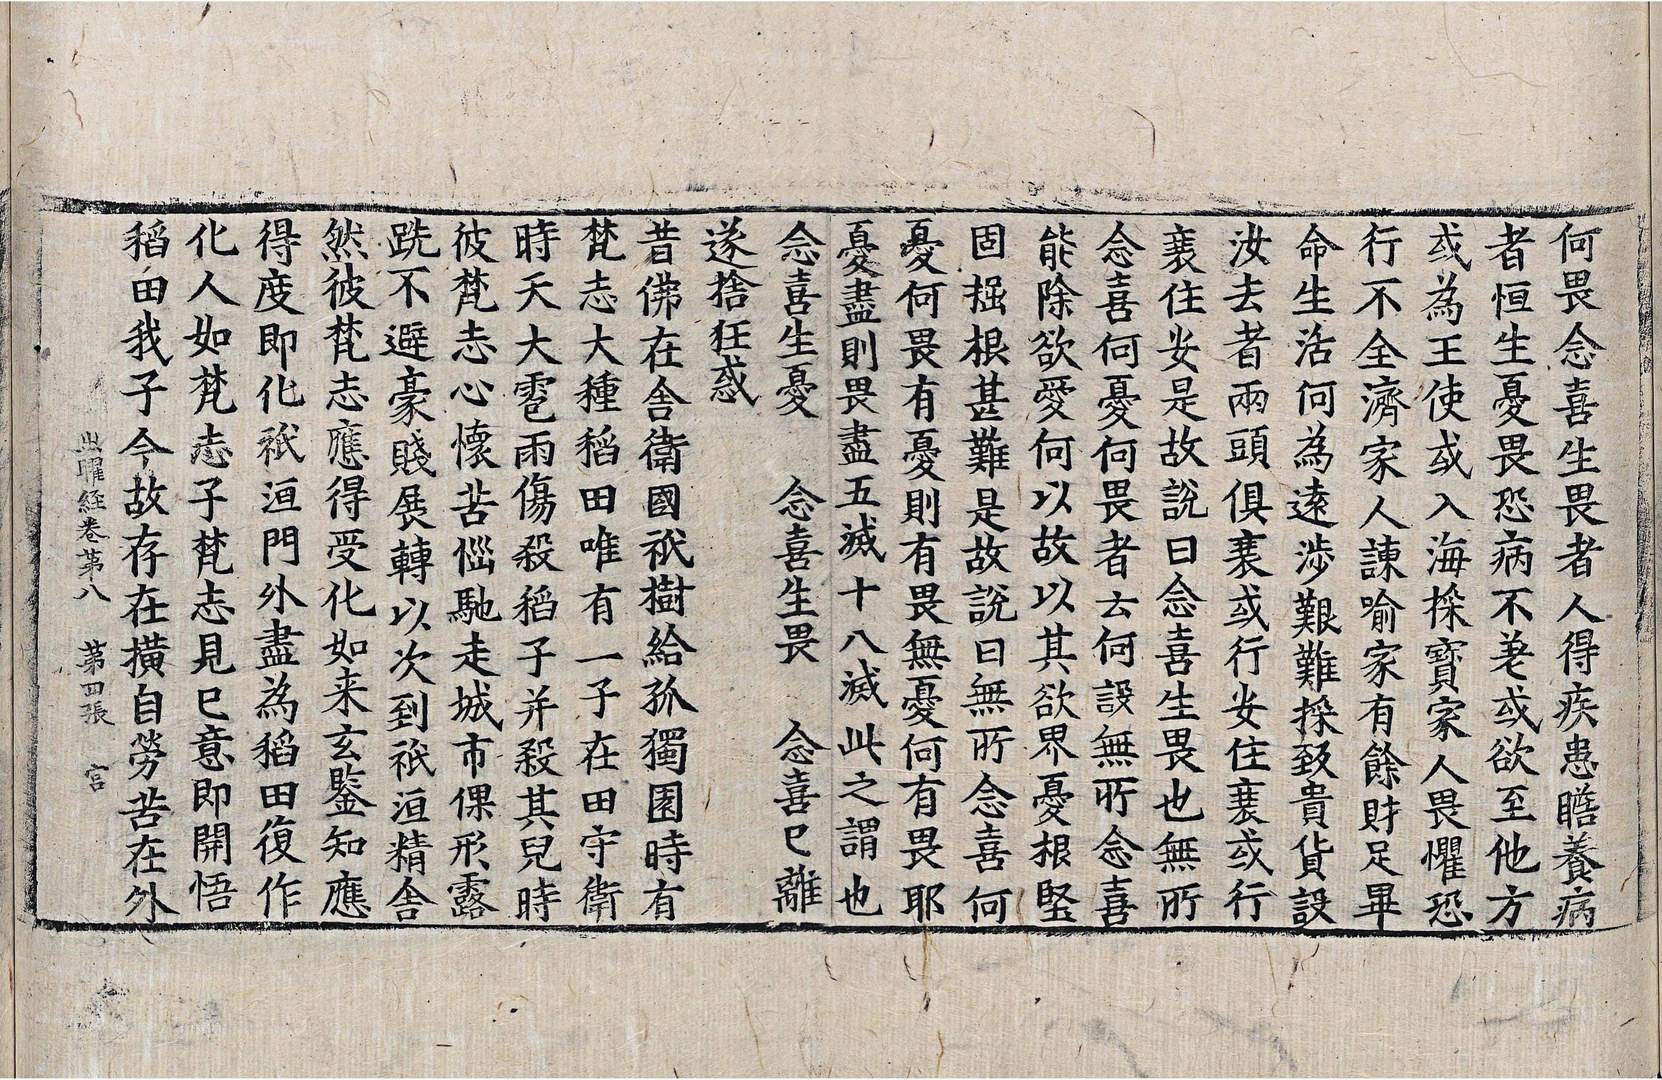 何畏念喜生畏者人得疾患瞻養病
者恒生憂畏恐病不差或欲至他方
或為王使或入海採寶家人畏懼恐
行不全濟家人諫喻家有餘財足畢
命生活何為遠涉艱難採致貴貨設
汝去者兩頭俱衰或行安住衰或行
衰住安是故說曰念喜生畏也無所
念喜何憂何畏者云何設無所念喜
能除欲愛何以故以其欲界憂根堅
固掘根甚難是故說曰無所念喜何
憂何畏有憂則有畏無憂何有畏耶
憂盡則畏盡五滅十八滅此之謂也
念喜生憂 念喜生畏 念喜已離
遂捨狂惑
昔佛在舍衛國祇樹給孤獨園時有
梵志大種稻田唯有一子在田守衛
時天大雹雨傷殺稻子并殺其兒時
彼梵志心懷苦惱馳走城市倮形露
跣不避豪賤展轉以次到祇洹精舍
然彼梵志應得受化如来玄鑒知應
得度即化祇洹門外盡為稻田復作
化人如梵志子梵志見已意即開悟
稻田我子今故存在橫自勞苦在外
出曜経卷第八 第四張 宮